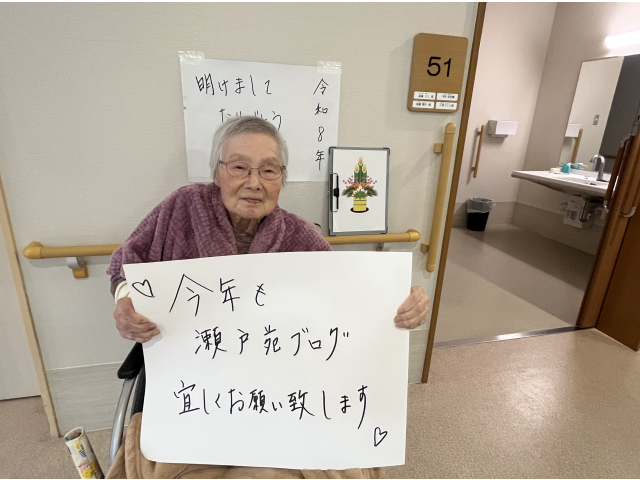 明けまして
令和8年
51
今年も
瀬戸苑ブログ
宜しくお願い致します